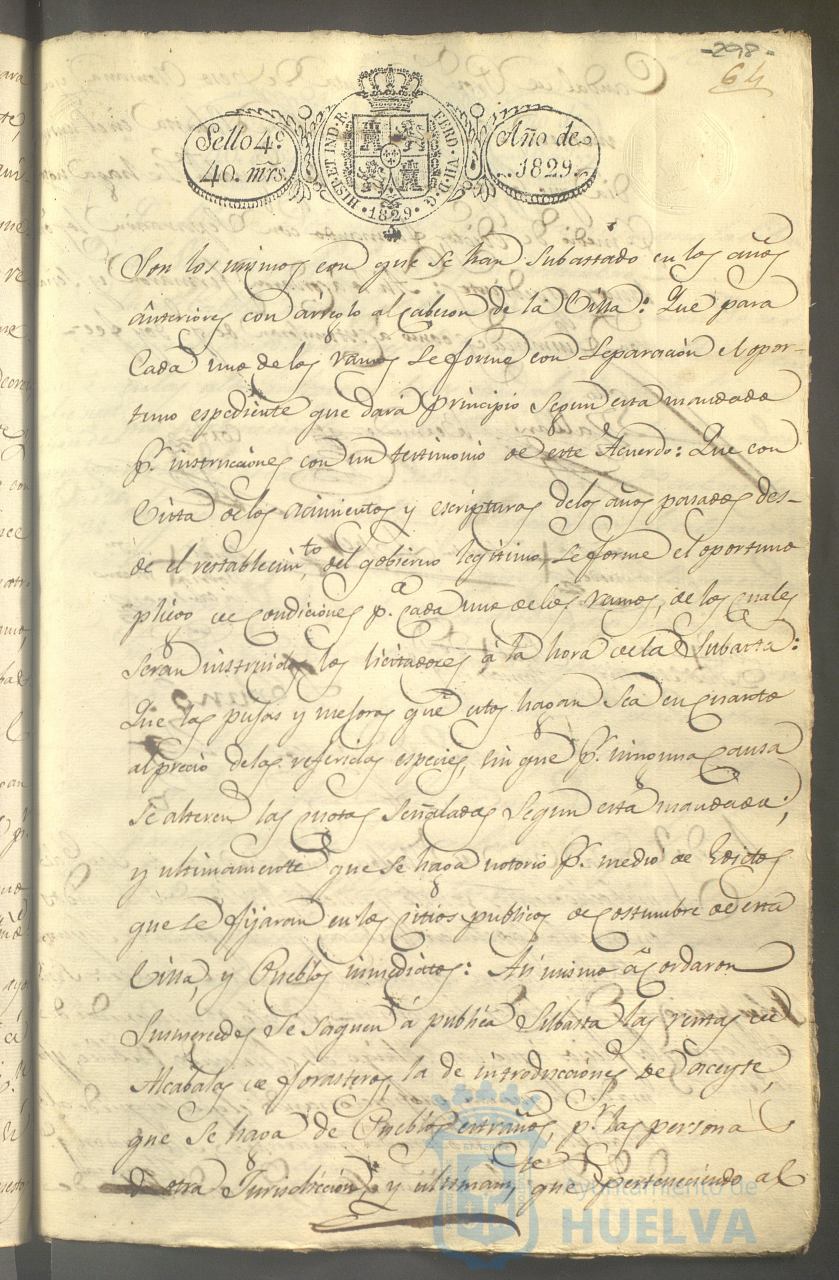 -298-
64
Sello 4º
40. mrs.
HISP. ET IND. R.
FERD. VII. D. G.
·1829·
Año de
1829.
Son los mismos con que se han subastado en los años
anteriores con arreglo al cabezon de la Villa: Que para
Cada uno de los ramos se forme con separacion el opor-
tuno espediente que dará principio segun esta mandado
pr. instrucciones con un testimonio de este Acuerdo: Que con
Vista de los acimientos y escripturas de los años pasados des-
de el restablecimto. del gobierno legitimo, se forme el oportuno
pliego de Condiciones pa. cada uno de los ramos, de los cuales
seran instruidos los licitadores á la hora de la Subasta:
Que las pujas y mejoras que estos hagan sea en cuanto
al precio de las referidas especies, sin que pr. ninguna causa
se alteren las cuotas señaladas segun está mandado;
y ultimamente que se haga notorio pr. medio de Edictos
que se fijaran en los Sitios publicos de costumbre de esta
Villa, y Pueblos inmediatos: Asi mismo acordaron
Susmercedes se saquen á publica Subasta las rentas de
Alcabalas de forasteros, la de introducciones de aceyte,
que se haga de Pueblos estraños, pr. las persona
d otra Jurisdiccion y ultimamte, que perteneciendo al
Ayuntamiento de
HUELVA